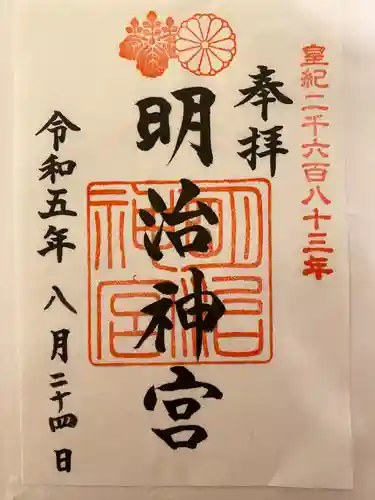 皇紀二千六百八十三年
奉拝
明治神宮
明治神宮
令和五年八月二十四日